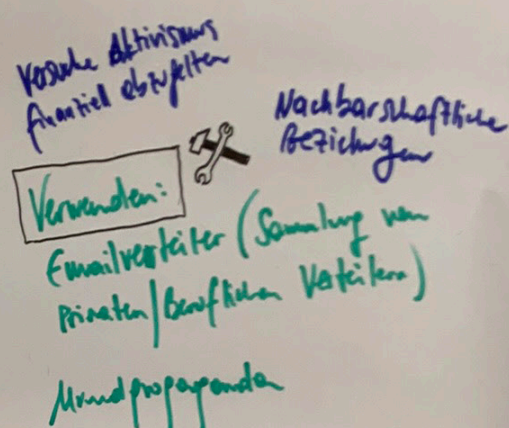 Versuche Aktivismus
finanziell abzufedern
Nachbarschaftliche
Beziehungen
Verwenden:
Emailverteiler (Sammlung von
Privaten/Beruflichen Verteilern)
Mundpropaganda